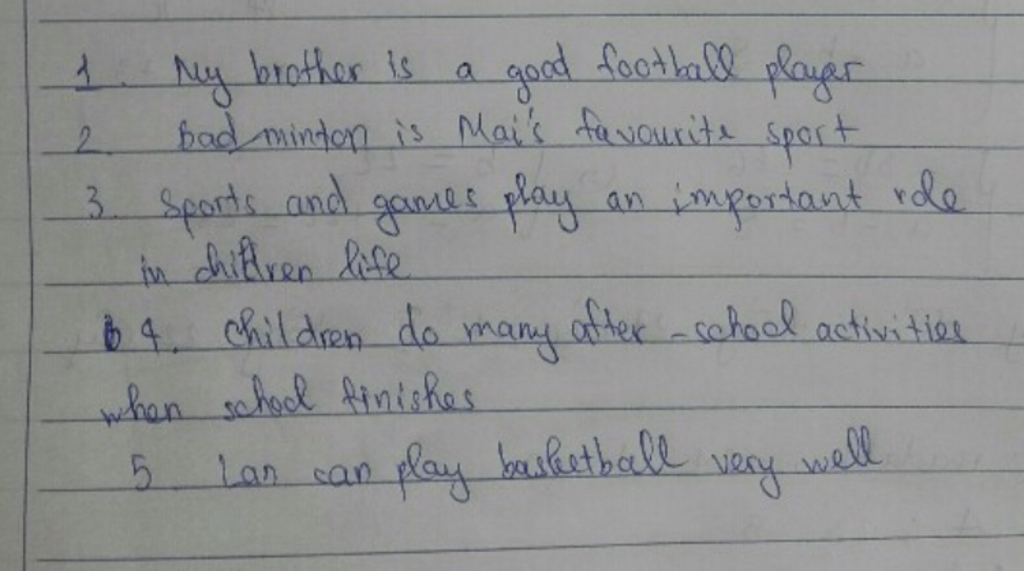 1. My brother is a good football player
2. badminton is Mai's favourite sport
3. Sports and games play an important role
in children life
4. children do many after-school activities
when school finishes
5 Lan can play basketball very well